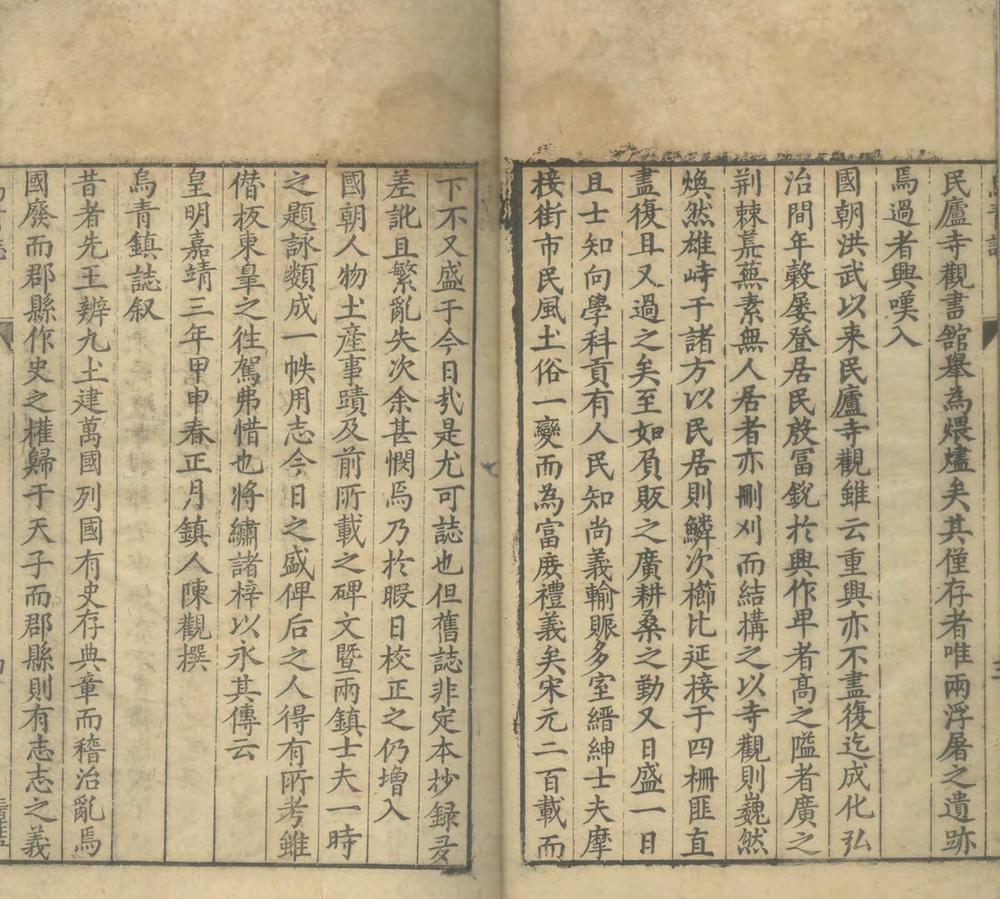 民廬寺觀書館舉為煨燼矣其僅存者唯兩浮屠之遺跡
焉過者興嘆入
國朝洪武以来民廬寺觀雖云重興亦不盡復迄成化弘
治間年榖屡登居民殷冨銳於興作卑者髙之隘者廣之
荆棘蕪素無人居者亦刪刈而結構之以寺觀則巍然
煥然雄峙于諸方以民居則鱗次櫛比延接于四柵匪直
盡復且又過之矣至如負販之廣耕桑之勤又日盛一日
且士知向學科貢有人民知尚義輸賑多室縉紳士夫摩
接街市民風土俗一變而為富庻禮義矣宋元二百載而
下不又盛于今日㢤是尤可誌也但舊誌非定本抄録
差訛且繁亂失次余甚憫焉乃於暇日校正之仍增入
國朝人物土産事蹟及前所載之碑文暨兩鎮士夫一時
之題詠𩔖成一帙用志今日之盛俾后之人得有所考雖
僣扳東皐之徃駕弗惜也将繡諸梓以永其傳云
皇明嘉靖三年甲申春正月鎮人陳觀撰
烏青鎮誌叙
昔者先王辨九土建萬國列國有史存典章而稽治亂焉
國廢而郡縣作史之權歸于天子而郡縣則有志志之義